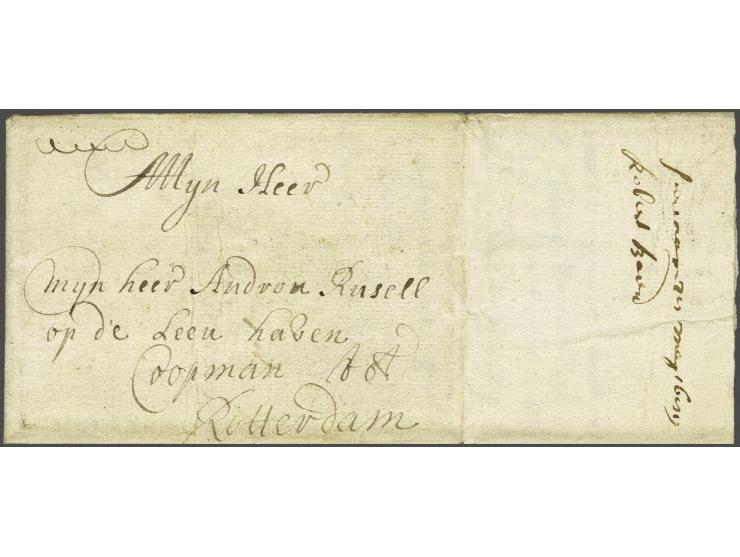 Myn Heer
Myn heer Andron Rusell
op de Leeu haven
Coopman tot
Rotterdam
Robert